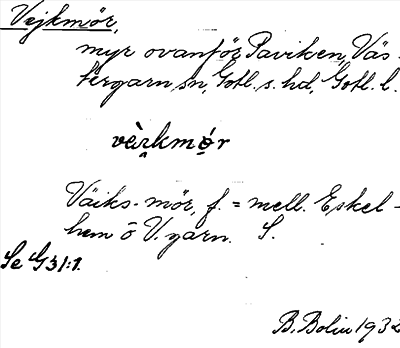 Vejkmör,
myr ovanför Paviken, Väs-
tergarn sn, Gotl. s. hd, Gotl. l.
vèrkmo̜r
Väiks-mör, f. = mell. Eskel-
hem ö V.garn. S.
Se G31:1.
B. Bolin 1932